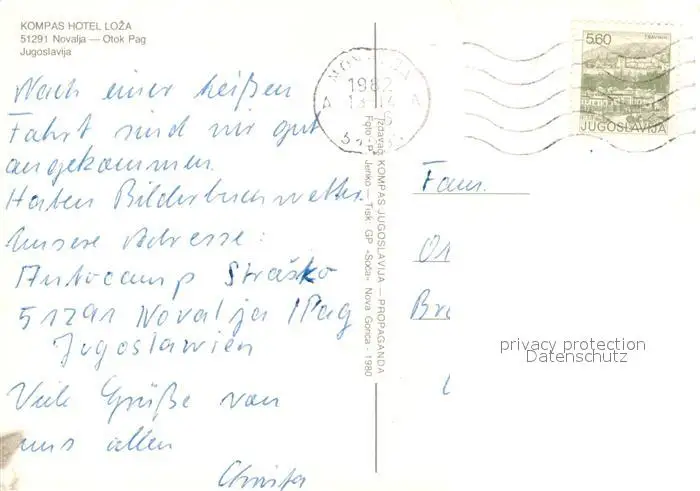 KOMPAS HOTEL LOŽA
51291 Novalja — Otok Pag
Jugoslavija
Nach einer heißen
Fahrt sind wir gut
angekommen.
Haben Bilderbuchwetter.
Unsere Adresse:
Autocamp Straško
51291 Novalja / Pag
Jugoslawien
Viele Grüße von
uns allen
Christa
1982
Izdavač KOMPAS JUGOSLAVIJA — PROPAGANDA
Foto P. Jenko — Tisk GP »Soča« Nova Gorica - 1980
5.60
TRAVNIK
JUGOSLAVIJA
Fam.
privacy protection
Datenschutz